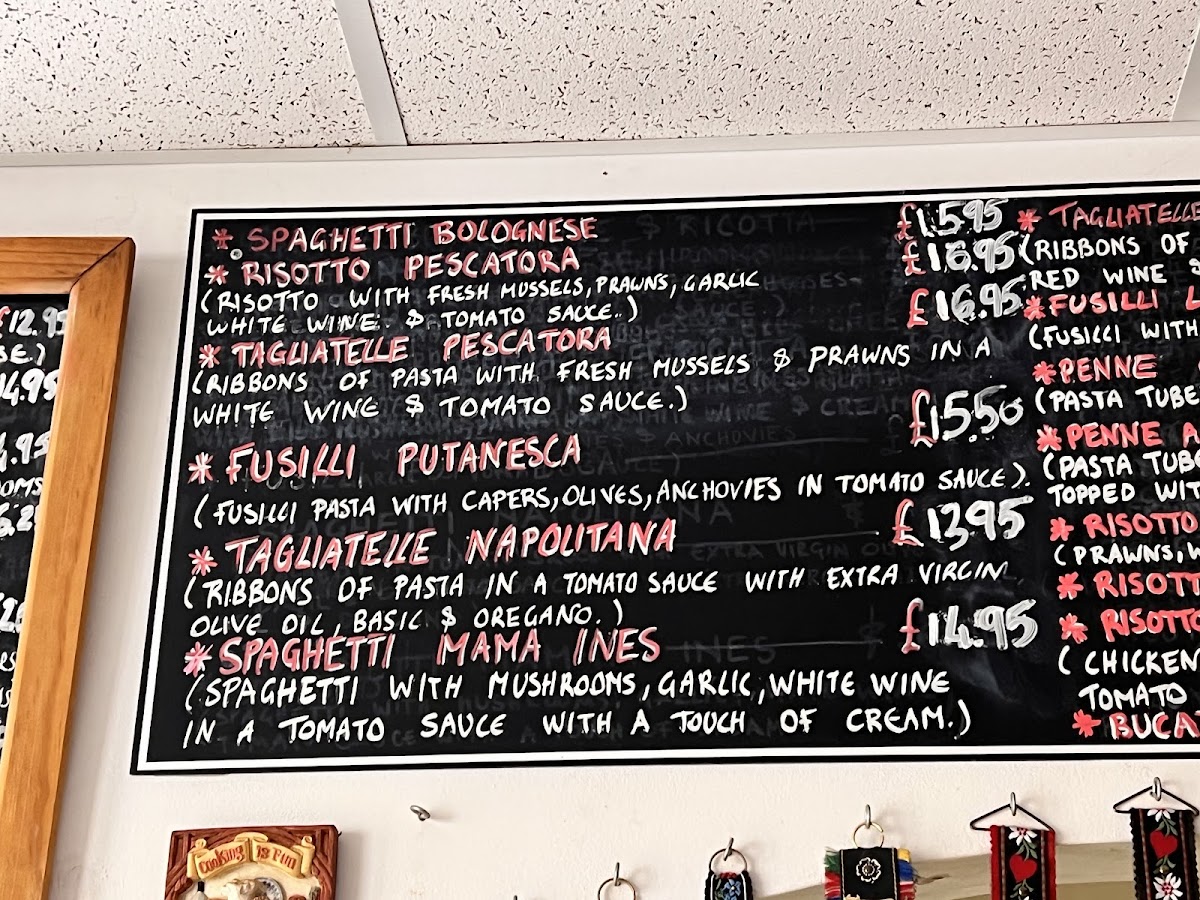 * SPAGHETTI BOLOGNESE £15.95
* RISOTTO PESCATORA £16.95
(RISOTTO WITH FRESH MUSSELS, PRAWNS, GARLIC
WHITE WINE & TOMATO SAUCE.)
* TAGLIATELLE PESCATORA £16.95
(RIBBONS OF PASTA WITH FRESH MUSSELS & PRAWNS IN A
WHITE WINE & TOMATO SAUCE.)
* FUSILLI PUTANESCA £15.50
(FUSILLI PASTA WITH CAPERS, OLIVES, ANCHOVIES IN TOMATO SAUCE).
* TAGLIATELLE NAPOLITANA £13.95
(RIBBONS OF PASTA IN A TOMATO SAUCE WITH EXTRA VIRGIN
OLIVE OIL, BASIC & OREGANO.)
* SPAGHETTI MAMA INES £14.95
(SPAGHETTI WITH MUSHROOMS, GARLIC, WHITE WINE
IN A TOMATO SAUCE WITH A TOUCH OF CREAM.)
* TAGLIATELLE
(RIBBONS OF
RED WINE &
* FUSILLI
(FUSILLI WITH
* PENNE
(PASTA TUBE
* PENNE
(PASTA TUBE
TOPPED WIT
* RISOTTO
(PRAWNS,
* RISOTT
* RISOTTO
(CHICKEN
TOMATO
* BUCA
£12.95
14.95
4.95
Cooking is Fun